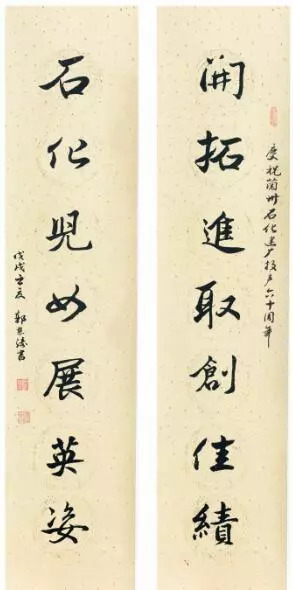 開拓進取創佳績
慶祝蘭州石化建厂投产六十周年
石化兒女展英姿
戊戌 夏 郭 書